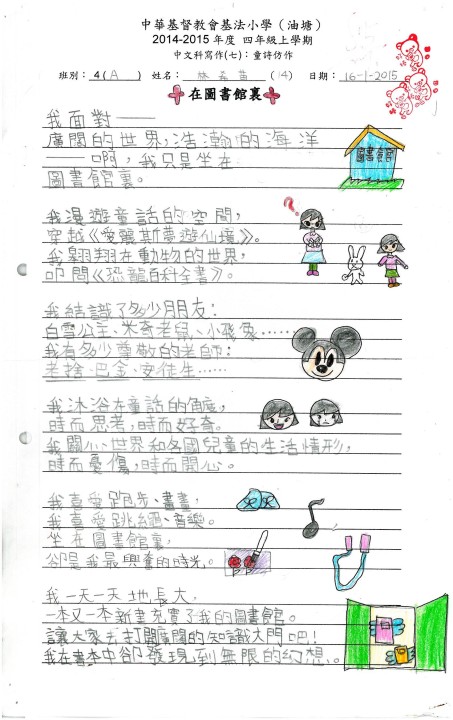 中華基督教會基法小學（油塘）
2014-2015 年度 四年級上學期
中文科寫作(七)：童詩仿作
班別：4(A) 姓名：林 (14) 日期：16-1-2015
在圖書館裏
我面對——
廣闊的世界，浩瀚的海洋
——啊，我只是坐在
圖書館裏。
圖書館
我漫遊童話的空間，
穿越《愛麗斯夢遊仙境》。
我翱翔在動物的世界，
叩問《恐龍百科全書》。
我結識了多少朋友：
白雪公主、米奇老鼠、小飛象……
我有多少尊敬的老師：
老捨、巴金、安徒生……
我沐浴在童話的角度，
時而思考，時而好奇。
我關心世界和各國兒童的生活情形，
時而憂傷，時而開心。
我喜愛跑步、畫畫，
我喜愛跳繩、音樂。
坐在圖書館裏，
卻是我最興奮的時光。
我一天一天地長大，
一本又一本新書充實了我的圖書館。
讓大家去打開廣闊的知識大門吧！
我在書本中卻發現到無限的幻想…。